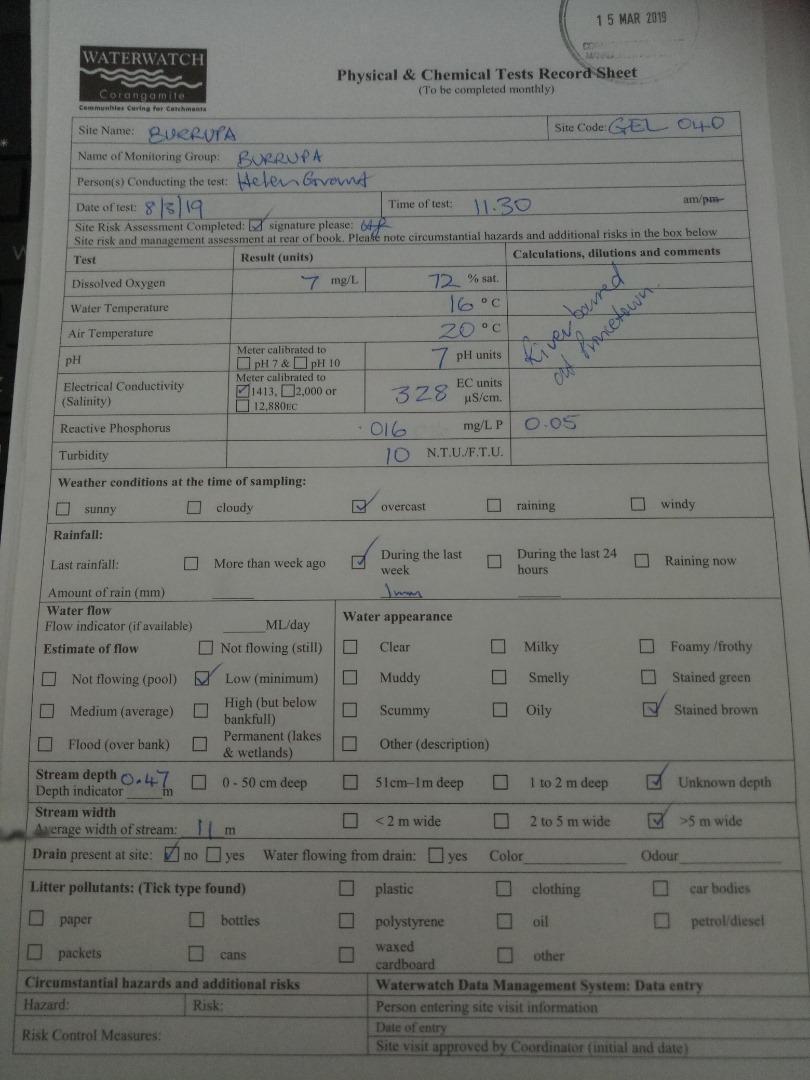 15 MAR 2019
WATERWATCH
Corangamite
Communities Caring for Catchments
Physical & Chemical Tests Record Sheet
(To be completed monthly)
Site Name: BURRUPA Site Code: GEL 040
Name of Monitoring Group: BURRUPA
Person(s) Conducting the test: Helen
Date of test: 8/3/19 Time of test: 11.30 am/pm
Site Risk Assessment Completed: signature please:
Site risk and management assessment at rear of book. Please note circumstantial hazards and additional risks in the box below
Test Result (units) Calculations, dilutions and comments
Dissolved Oxygen 7 mg/L 72 % sat.
Water Temperature 16 °C
Air Temperature 20 °C
River barred
at Princetown
pH Meter calibrated to pH 7 & pH 10 7 pH units
Electrical Conductivity (Salinity) Meter calibrated to 1413, 2,000 or 12,880EC 328 EC units µS/cm.
Reactive Phosphorus .016 mg/L P 0.05
Turbidity 10 N.T.U./F.T.U.
Weather conditions at the time of sampling:
sunny cloudy overcast raining windy
Rainfall:
Last rainfall: More than week ago During the last week During the last 24 hours Raining now
Amount of rain (mm) 1mm
Water flow
Flow indicator (if available) ML/day
Estimate of flow Not flowing (still)
Not flowing (pool) Low (minimum)
Medium (average) High (but below bankfull)
Flood (over bank) Permanent (lakes & wetlands)
Water appearance
Clear Milky Foamy /frothy
Muddy Smelly Stained green
Scummy Oily Stained brown
Other (description)
Stream depth 0.47
Depth indicator m 0 - 50 cm deep 51cm–1m deep 1 to 2 m deep Unknown depth
Stream width
Average width of stream: 11 m < 2 m wide 2 to 5 m wide >5 m wide
Drain present at site: no yes Water flowing from drain: yes Color Odour
Litter pollutants: (Tick type found) plastic clothing car bodies
paper bottles polystyrene oil petrol/diesel
packets cans waxed cardboard other
Circumstantial hazards and additional risks Waterwatch Data Management System: Data entry
Hazard: Risk: Person entering site visit information
Risk Control Measures: Date of entry
Site visit approved by Coordinator (initial and date)